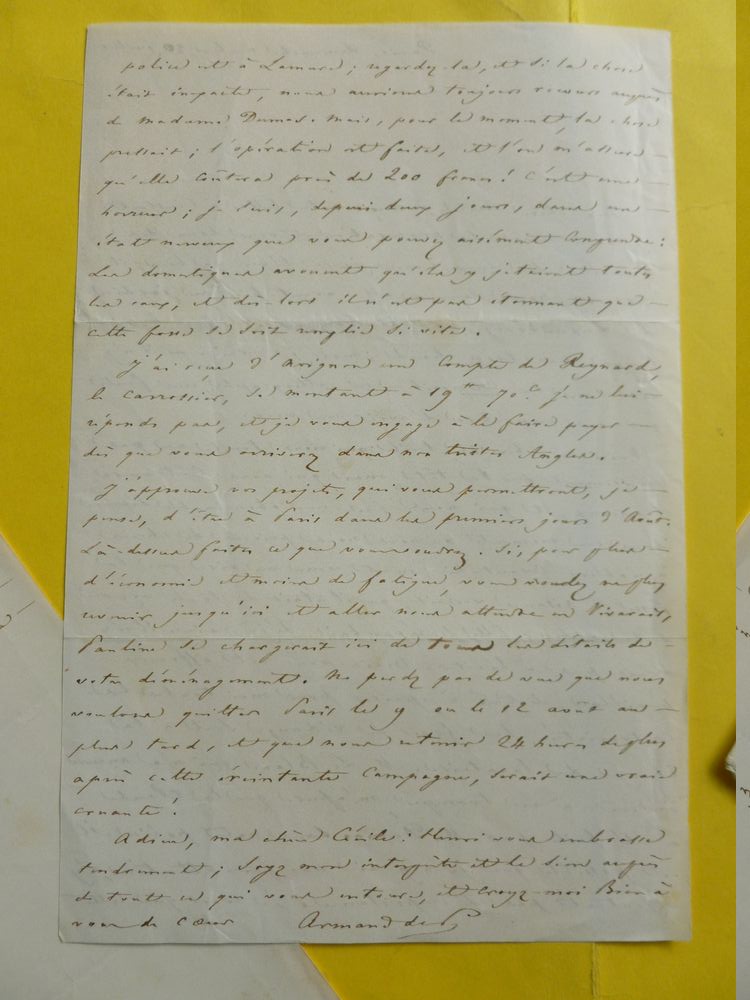 police est à Lamure ; regardez-la, et si la chose
était imparte, nous aurions toujours recours auprès
de Madame Dumas. Mais, pour le moment, la chose
pressait ; l'opération est faite, et l'on m'assure
qu'elle coûtera près de 200 francs ! C'est une
horreur ; je suis, depuis deux jours, dans un
état nerveux que vous pouvez aisément comprendre :
Les domestiques avouent qu'ils y jetaient toutes
les eaux, et dès-lors il n'est pas étonnant que
cette fosse se soit remplie si vite.
J'ai reçu d'Avignon un Compte de Reynard,
le carrossier, se montant à 19 ₶ 70 c. je ne lui
réponds pas, et je vous engage à le faire payer
dès que vous arriverez dans nos tristes Angles.
J'approuve vos projets, qui vous permettront, je
pense, d'être à Paris dans les premiers jours d'Août.
Là-dessus faites ce que vous voudrez. Si, pour plus
d'économie et moins de fatigue, vous voulez ne plus
revenir jusqu'ici et aller nous attendre en Vivarais,
Pauline se chargerait ici de tous les détails de
votre déménagement. Ne perdez pas de vue que nous
voulons quitter Paris le 9 ou le 12 août au
plus tard, et que nous retenir 24 heures de plus
après cette éreintante Campagne, serait une vraie
cruauté !
Adieu, ma chère Cécile : Henri vous embrasse
tendrement ; Soyez mon interprète et le sien auprès
de tout ce qui vous entoure, et croyez-moi Bien à
vous de cœur Armand de P.